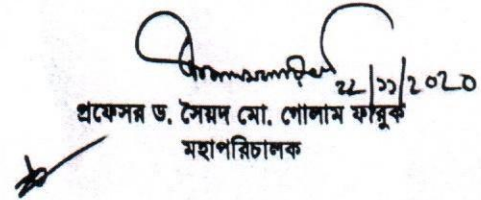 ২২/১১/২0২0
প্রফেসর ড. সৈয়দ মো. গোলাম ফারুক
মহাপরিচালক